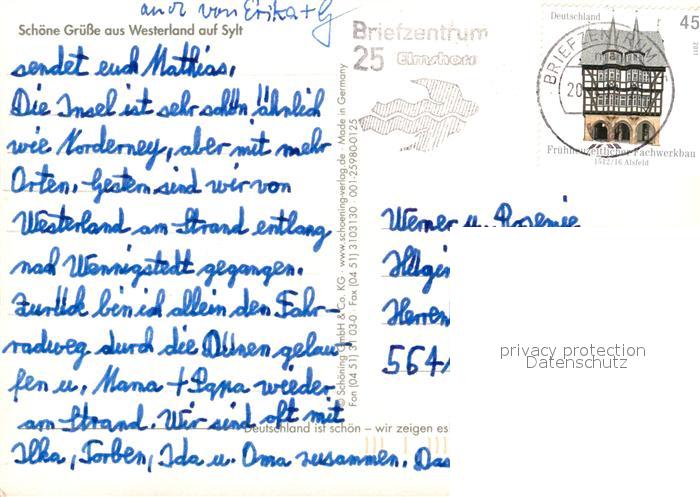 auch von Erika +
Schöne Grüße aus Westerland auf Sylt
sendet euch Mathias.
Die Insel ist sehr schön, ähnlich
wie Norderney, aber mit mehr
Orten. Gestern sind wir von
Westerland am Strand entlang
nach Wennigstedt gegangen.
Zurück bin ich allein den Fahr-
radweg durch die Dünen gelau-
fen u. Mama + Papa wieder
am Strand. Wir sind oft mit
Ilka, Torben, Ida u. Oma zusammen. Das
© Schöning GmbH & Co. KG · www.schoening-verlag.de · Made in Germany
Fon (04 51) 31 03-0 · Fax (04 51) 3103130 · 001-25980-0125
Deutschland ist schön – wir zeigen es
Briefzentrum
25 Elmshorn
Deutschland
45
2011
BRIEFZENTRUM
20
Frühneuzeitlicher Fachwerkbau
1512/16 Alsfeld
Werner u. Rosemie
Herren
564
privacy protection
Datenschutz